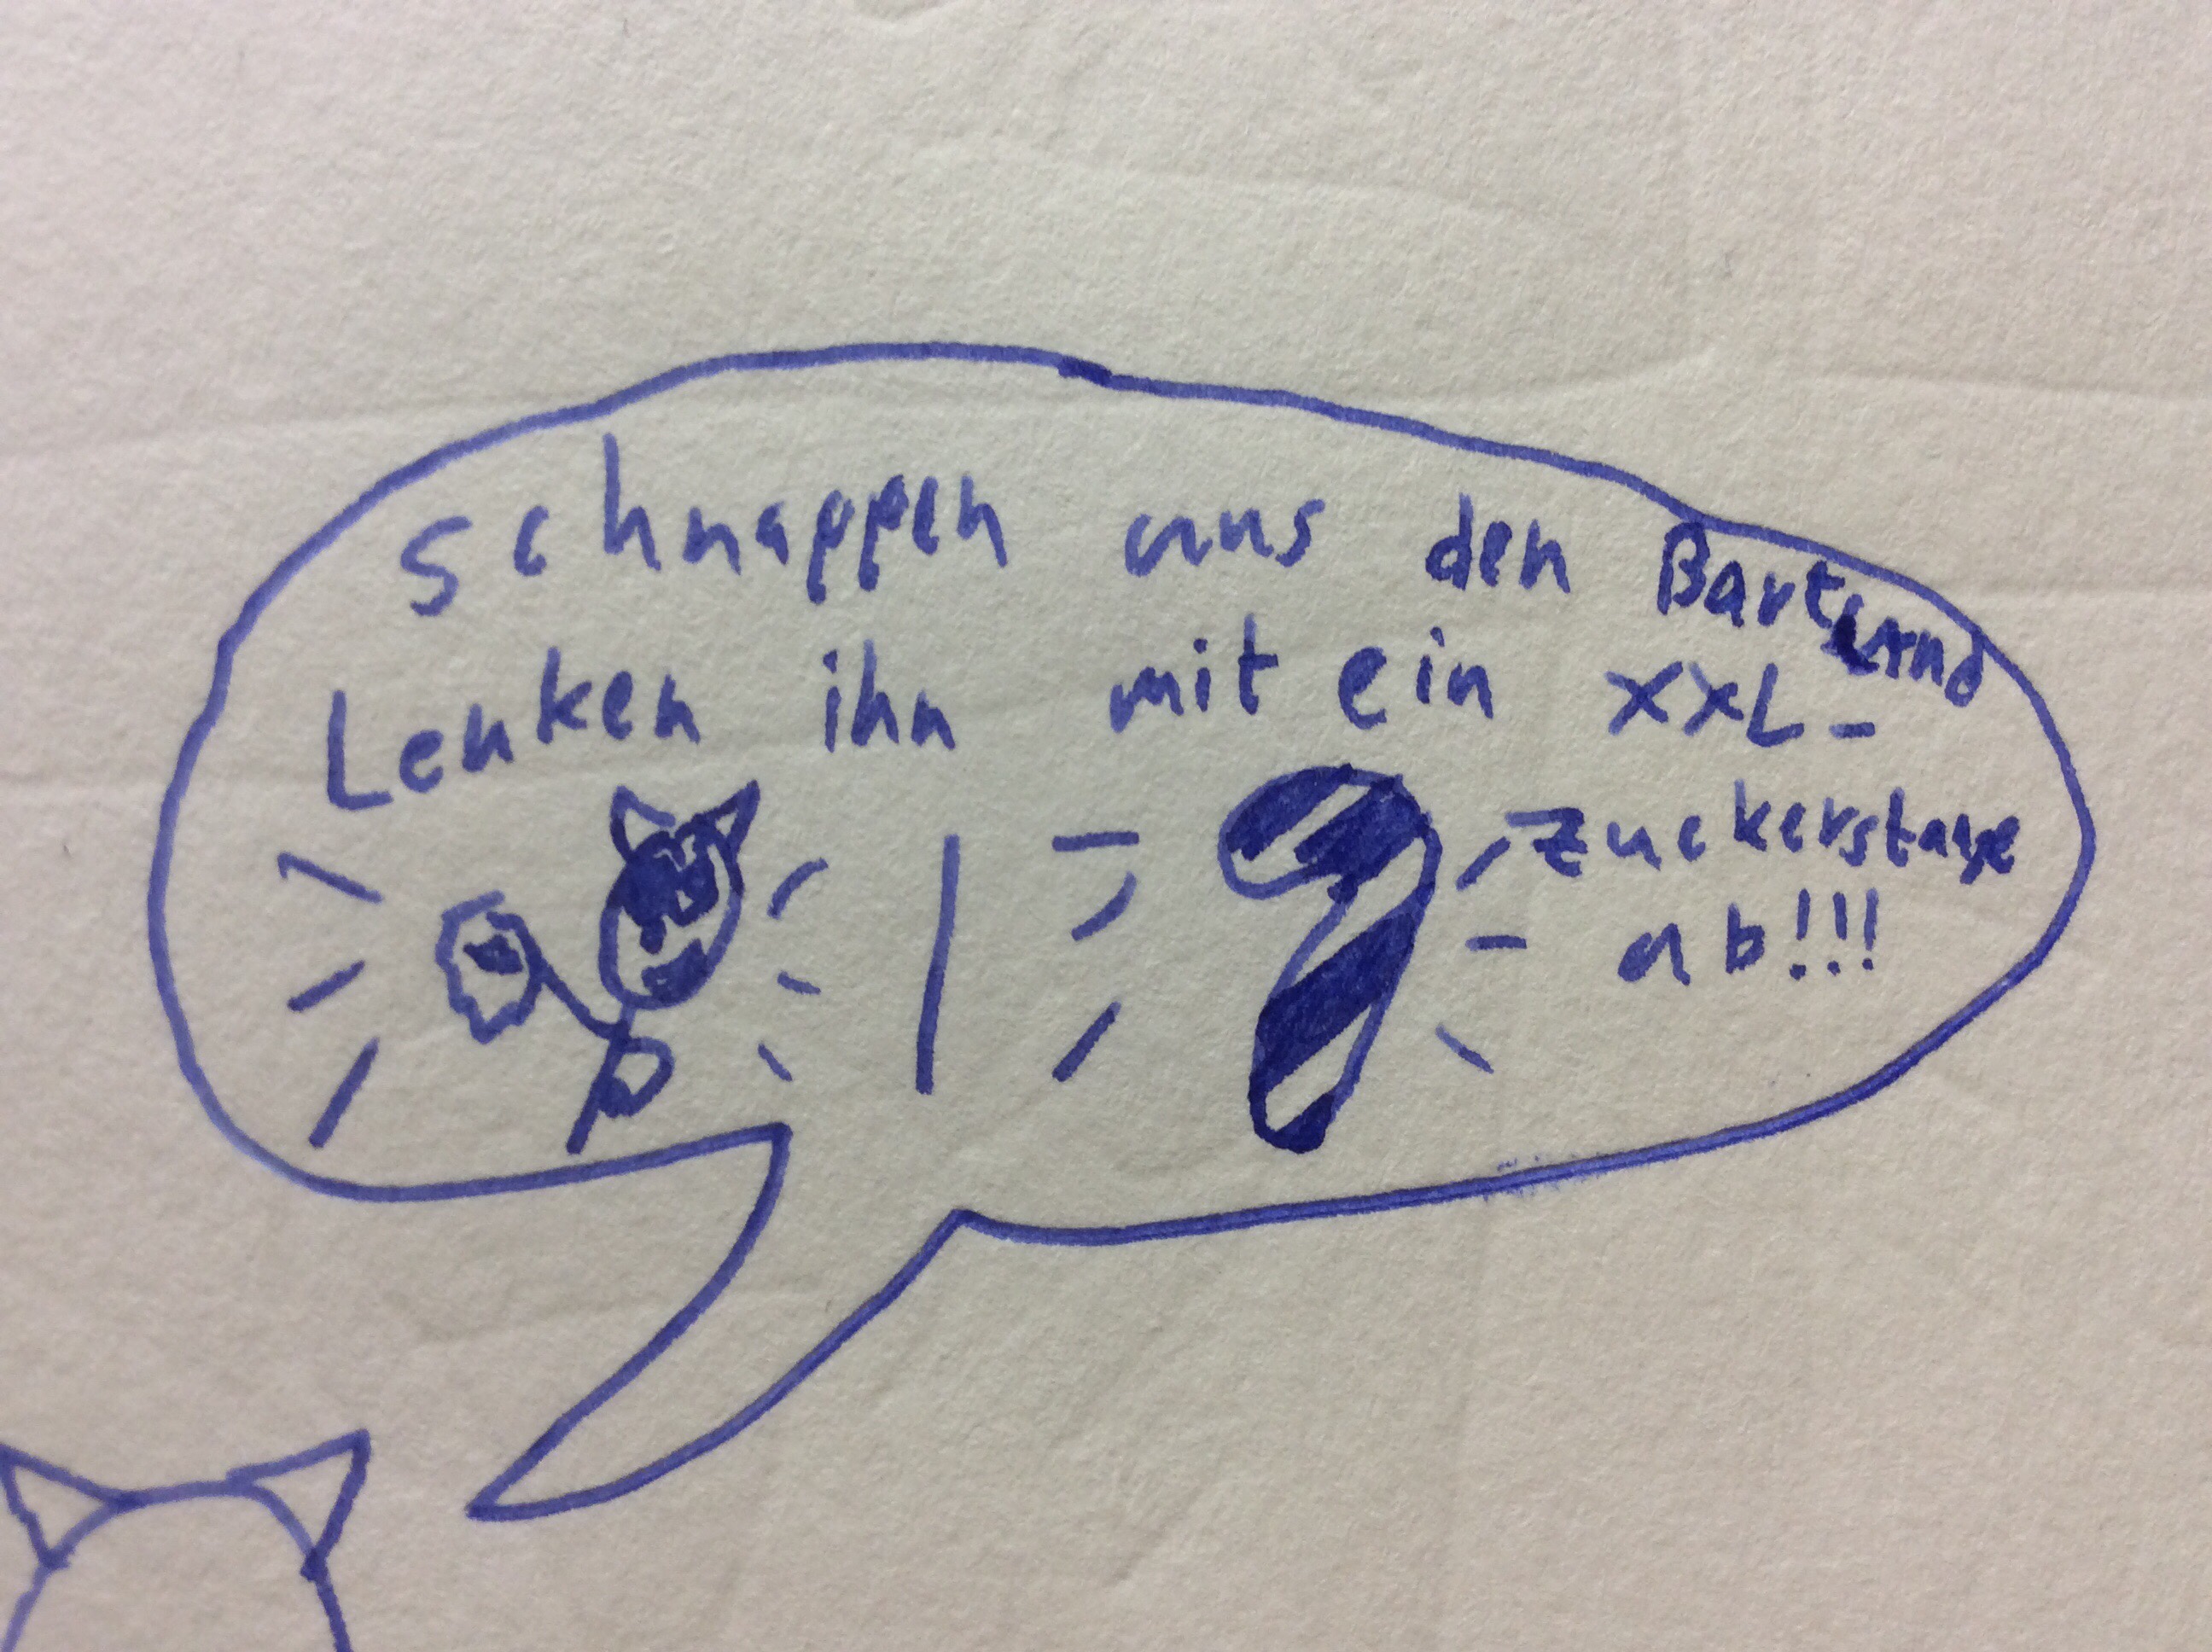 Schnappen uns den Bart und
Lenken ihn mit ein XXL-
Zuckerstange
ab!!!